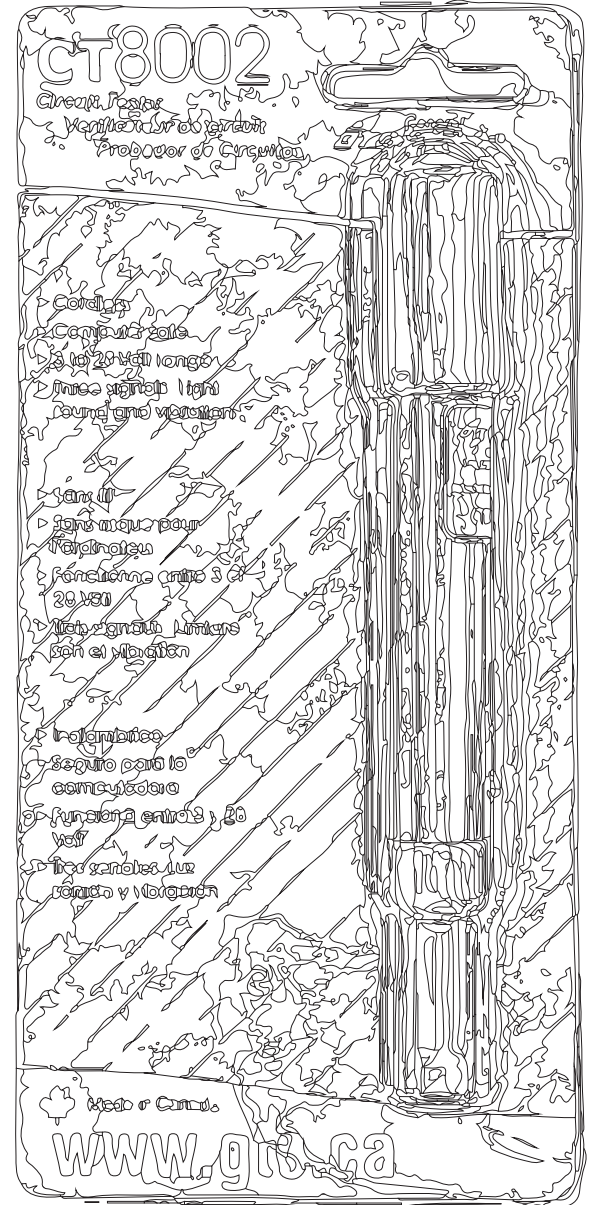 CT8002
Circuit Tester
Vérificateur de circuit
Probador de Circuitos
Cordless
Computer safe
3 to 28 Volt range
Three signals light
sound and vibration
Sans fil
Sans risque pour
l'ordinateur
Fonctionne entre 3 et
28 Volt
Trois signaux Lumière
son et vibration
Inalámbrico
Seguro para la
computadora
Funciona entre 3 y 28
Volt
Tres señales Luz
sonido y vibración
Made in Canada